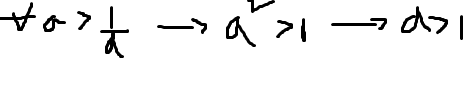 ∀ a > 1/a → a² > 1 → a > 1